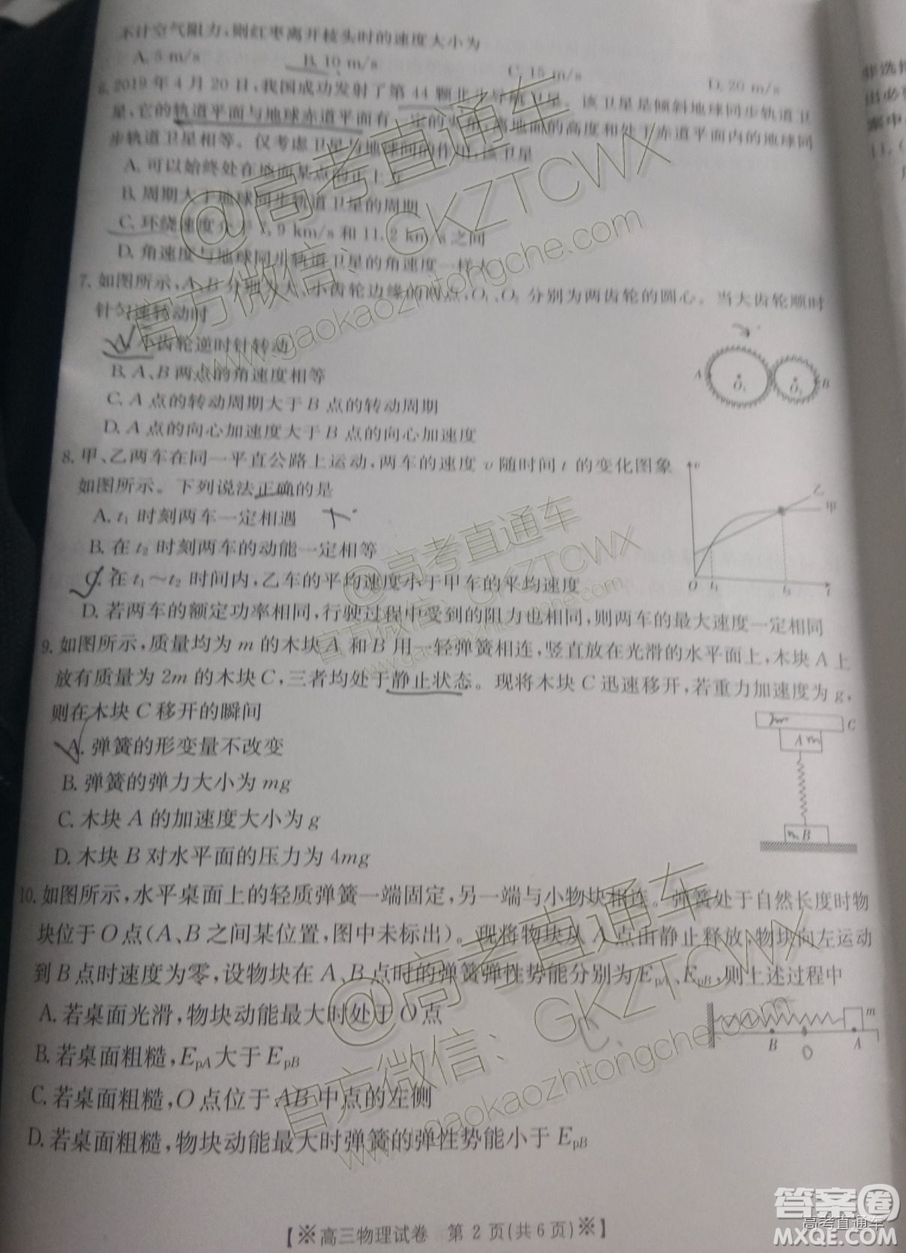 不计空气阻力,则红枣离开枝头时的速度大小为
A. 5 m/s B. 10 m/s C. 15 m/s D. 20 m/s
6. 2019 年 4 月 20 日,我国成功发射了第 44 颗北斗导航卫星。该卫星是倾斜地球同步轨道卫
星,它的轨道平面与地球赤道平面有一定的夹角,离地面的高度和处于赤道平面内的地球同
步轨道卫星相等。仅考虑卫星与地球间的作用,该卫星
A. 可以始终处在地面某点的正上方
B. 周期大于地球同步轨道卫星的周期
C. 环绕速度介于 7.9 km/s 和 11.2 km/s 之间
D. 角速度与地球同步轨道卫星的角速度一样大
7. 如图所示,A、B 分别为大、小齿轮边缘的两点,O₁、O₂ 分别为两齿轮的圆心。当大齿轮顺时
针匀速转动时
A. 小齿轮逆时针转动
B. A、B 两点的角速度相等
C. A 点的转动周期大于 B 点的转动周期
D. A 点的向心加速度大于 B 点的向心加速度
A O₁ O₂ B
8. 甲、乙两车在同一平直公路上运动,两车的速度 v 随时间 t 的变化图象
如图所示。下列说法正确的是
A. t₁ 时刻两车一定相遇
B. 在 t₂ 时刻两车的动能一定相等
C. 在 t₁～t₂ 时间内,乙车的平均速度小于甲车的平均速度
D. 若两车的额定功率相同,行驶过程中受到的阻力也相同,则两车的最大速度一定相同
v 乙 甲
O t₁ t₂ t
9. 如图所示,质量均为 m 的木块 A 和 B 用一轻弹簧相连,竖直放在光滑的水平面上,木块 A 上
放有质量为 2m 的木块 C,三者均处于静止状态。现将木块 C 迅速移开,若重力加速度为 g,
则在木块 C 移开的瞬间
A. 弹簧的形变量不改变
B. 弹簧的弹力大小为 mg
C. 木块 A 的加速度大小为 g
D. 木块 B 对水平面的压力为 4mg
C
A m
m B
10. 如图所示,水平桌面上的轻质弹簧一端固定,另一端与小物块相连。弹簧处于自然长度时物
块位于 O 点(A、B 之间某位置,图中未标出)。现将物块从 A 点由静止释放,物块向左运动
到 B 点时速度为零,设物块在 A、B 点时的弹簧弹性势能分别为 EpA、EpB,则上述过程中
A. 若桌面光滑,物块动能最大时处于 O 点
B. 若桌面粗糙,EpA 大于 EpB
C. 若桌面粗糙,O 点位于 AB 中点的左侧
D. 若桌面粗糙,物块动能最大时弹簧的弹性势能小于 EpB
m
B O A
【※高三物理试卷 第 2 页(共 6 页)※】
@高考直通车
官方微信：GKZTCWX
www.gaokaozhitongche.com
@高考直通车
官方微信：GKZTCWX
www.gaokaozhitongche.com
@高考直通车
官方微信：GKZTCWX
www.gaokaozhitongche.com
答案卷
高考直通车
MXQE.COM